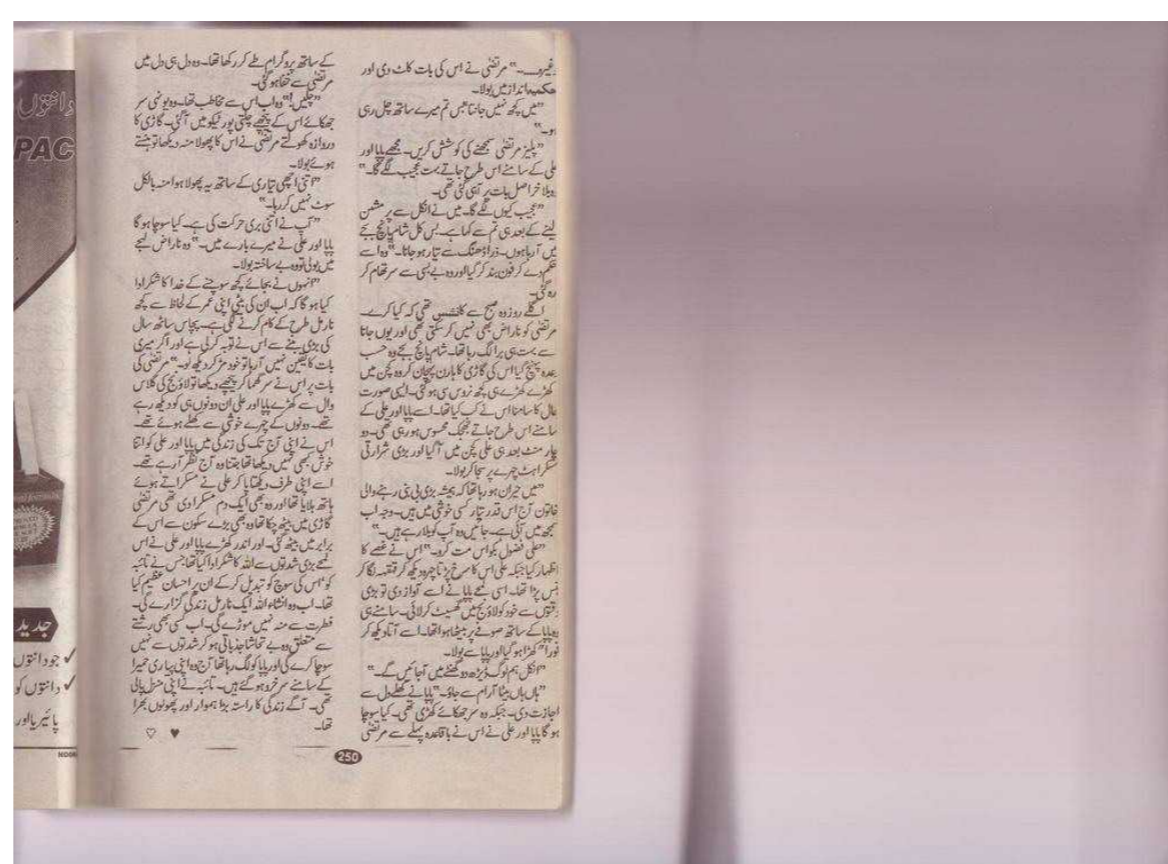 غیرہ۔" مرتضٰی نے اس کی بات کاٹ دی اور
حکمیہ انداز میں بولا۔
"میں کچھ نہیں جانتا بس تم میرے ساتھ چل رہی
ہو۔"
"پلیز مرتضٰی سمجھنے کی کوشش کریں۔ مجھے پاپا اور
علی کے سامنے اس طرح جاتے بہت عجیب لگے گا۔"
وہ بلاخر اصل بات پر آ ہی گئی تھی۔
"عجیب کیوں لگے گا۔ میں نے انکل سے پرمشن
لینے کے بعد ہی تم سے کہا ہے۔ بس کل شام پانچ بجے
میں آ رہا ہوں۔ ذرا ڈھنگ سے تیار ہو جانا۔" وہ اسے
حکم دے کر فون بند کر گیا اور وہ بے بسی سے سر تھام کر
رہ گئی۔
اگلے روز وہ صبح سے کانشس تھی کہ کیا کرے۔
مرتضٰی کو ناراض بھی نہیں کر سکتی تھی اور یوں جانا
اسے بہت ہی برا لگ رہا تھا۔ شام پانچ بجے وہ حسب
وعدہ پہنچ گیا اس کی گاڑی کا ہارن پہچان کر وہ کچن میں
کھڑے کھڑے ہی کچھ نروس سی ہو گئی۔ ایسی صورت
حال کا سامنا اس نے کب کیا تھا۔ اسے پاپا اور علی کے
سامنے اس طرح جاتے جھجک محسوس ہو رہی تھی۔ دو
چار منٹ بعد ہی علی کچن میں آ گیا اور بڑی شرارتی
مسکراہٹ چہرے پر سجا کر بولا۔
"میں حیران ہو رہا تھا کہ ہمیشہ بڑی بی بنی رہنے والی
خاتون آج اس قدر تیار کس خوشی میں ہیں۔ وجہ اب
سمجھ میں آئی ہے۔ جائیں وہ آپ کو بلا رہے ہیں۔"
"علی فضول بکواس مت کرو۔" اس نے غصے کا
اظہار کیا جبکہ علی اس کا سرخ پڑتا چہرہ دیکھ کر قہقہہ لگا کر
ہنس پڑا تھا۔ اسی لمحے پاپا نے اسے آواز دی تو بڑی
دقتوں سے خود کو لاؤنج میں گھسیٹ کر لائی۔ سامنے ہی
وہ پاپا کے ساتھ صوفے پر بیٹھا ہوا تھا۔ اسے آتا دیکھ کر
فوراً کھڑا ہو گیا اور پاپا سے بولا۔
"انکل ہم لوگ ڈیڑھ دو گھنٹے میں آ جائیں گے۔"
"ہاں ہاں بیٹا آرام سے جاؤ۔" پاپا نے کھلے دل سے
اجازت دی۔ جبکہ وہ سر جھکائے کھڑی تھی۔ کیا سوچا
ہو گا پاپا اور علی نے اس نے باقاعدہ پہلے سے مرتضٰی
کے ساتھ پروگرام طے کر رکھا تھا۔ وہ دل ہی دل میں
مرتضٰی سے خفا ہو گئی۔
"چلیں!" وہ اب اس سے مخاطب تھا۔ وہ یونہی سر
جھکائے اس کے پیچھے چلتی پورٹیکو میں آ گئی۔ گاڑی کا
دروازہ کھولتے مرتضٰی نے اس کا پھولا منہ دیکھا تو ہنستے
ہوئے بولا۔
"اتنی اچھی تیاری کے ساتھ یہ پھولا ہوا منہ بالکل
سوٹ نہیں کر رہا۔"
"آپ نے اتنی بری حرکت کی ہے۔ کیا سوچا ہو گا
پاپا اور علی نے میرے بارے میں۔" وہ ناراض لہجے
میں بولی تو وہ بے ساختہ بولا۔
"انہوں نے بجائے کچھ سوچنے کے خدا کا شکر ادا
کیا ہو گا کہ اب ان کی بیٹی اپنی عمر کے لحاظ سے کچھ
نارمل طرح کے کام کرنے لگی ہے۔ پچاس ساٹھ سال
کی بڑی بننے سے اس نے توبہ کر لی ہے اور اگر میری
بات کا یقین نہیں آ رہا تو خود مڑ کر دیکھ لو۔" مرتضٰی کی
بات پر اس نے سر گھما کر پیچھے دیکھا تو لاؤنج کی گلاس
وال سے کھڑے پاپا اور علی ان دونوں ہی کو دیکھ رہے
تھے۔ دونوں کے چہرے خوشی سے کھلے ہوئے تھے۔
اس نے اپنی آج تک کی زندگی میں پاپا اور علی کو اتنا
خوش کبھی نہیں دیکھا تھا جتنا وہ آج نظر آ رہے تھے۔
اسے اپنی طرف دیکھتا پا کر علی نے مسکراتے ہوئے
ہاتھ ہلایا تھا اور وہ بھی ایک دم مسکرا دی تھی مرتضٰی
گاڑی میں بیٹھ چکا تھا وہ بھی بڑے سکون سے اس کے
برابر میں بیٹھ گئی۔ اور اندر کھڑے پاپا اور علی نے اس
لمحے بڑی شدتوں سے اللہ کا شکر ادا کیا تھا جس نے تائبہ
کو، اس کی سوچ کو تبدیل کر کے ان پر احسان عظیم کیا
تھا۔ اب وہ انشاء اللہ ایک نارمل زندگی گزارے گی۔
فطرت سے منہ نہیں موڑے گی۔ اب کسی بھی رشتے
سے متعلق وہ بے تحاشا جذباتی ہو کر شدتوں سے نہیں
سوچا کرے گی اور پاپا کو لگ رہا تھا آج وہ اپنی پیاری حمیرا
کے سامنے سرخرو ہو گئے ہیں۔ تائبہ نے اپنی منزل پا لی
تھی۔ آگے زندگی کا راستہ بڑا ہموار اور پھولوں بھرا
تھا۔
250
دانتوں
PAC
جدید
جو دانتوں
دانتوں کو
پائیریا اور